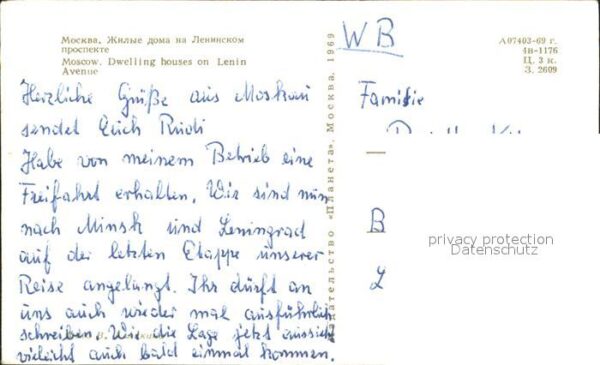 Москва, Жилые дома на Ленинском
проспекте
Moscow. Dwelling houses on Lenin
Avenue
Herzliche Grüße aus Moskau
sendet Euch Rudi
Habe von meinem Betrieb eine
Freifahrt erhalten. Wir sind nun
nach Minsk und Leningrad
auf der letzten Etappe unserer
Reise angelangt. Ihr dürft an
uns auch wieder mal ausführlich
schreiben. Wie die Lage jetzt aussieht
vieleicht auch bald einmal kommen.
Издательство «Планета». Москва. 1969
WB
А07403-69 г.
4в-1176
Ц. 3 к.
З. 2609
Familie
B
L
privacy protection
Datenschutz